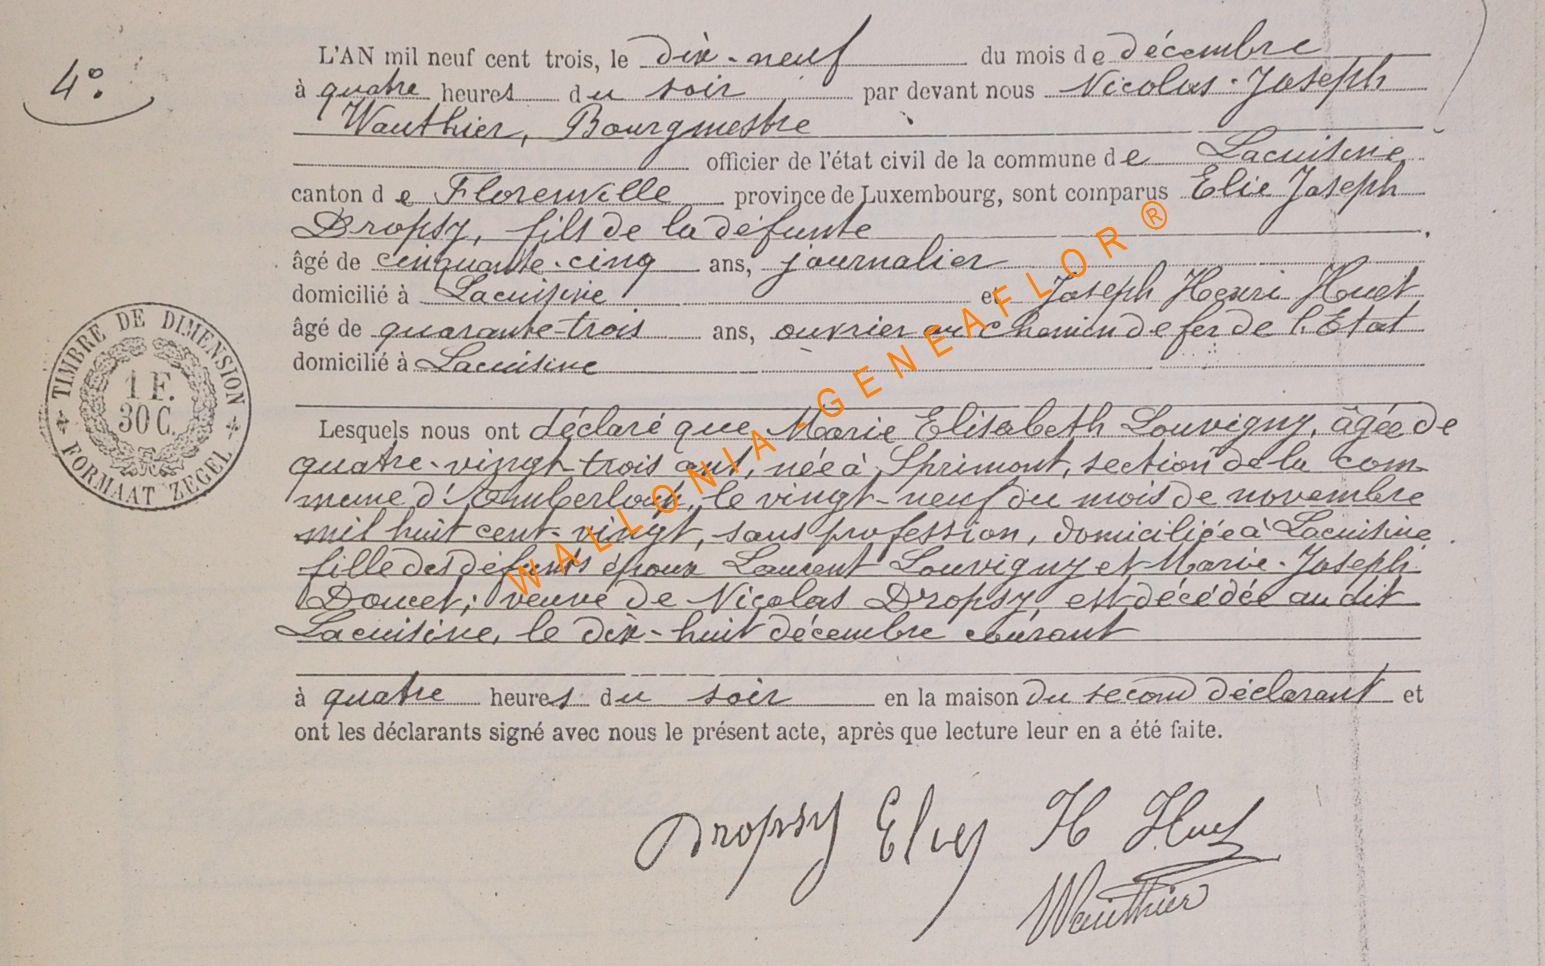 4°.
L'AN mil neuf cent trois, le dix-neuf du mois de décembre
à quatre heures du soir par devant nous Nicolas-Joseph
Wauthier, Bourgmestre
officier de l'état civil de la commune de Lacuisine
canton de Florenville province de Luxembourg, sont comparus Elie Joseph
Dropsy, fils de la défunte
âgé de cinquante-cinq ans, journalier
domicilié à Lacuisine et Joseph Henri Huet
âgé de quarante-trois ans, ouvrier au chemin de fer de l'Etat
domicilié à Lacuisine
Lesquels nous ont déclaré que Marie Elisabeth Louvigny, âgée de
quatre-vingt-trois ans, née à Sprimont, section de la com-
mune d'Amberloup, le vingt-neuf du mois de novembre
mil huit cent-vingt, sans profession, domiciliée à Lacuisine
fille des défunts époux Laurent Louvigny et Marie-Joseph
Doucet; veuve de Nicolas Dropsy, est décédée au dit
Lacuisine, le dix-huit décembre courant
à quatre heures du soir en la maison du second déclarant et
ont les déclarants signé avec nous le présent acte, après que lecture leur en a été faite.
Dropsy Elie H Huet
Wauthier
TIMBRE DE DIMENSION
1 F.
30 C.
FORMAAT ZEGEL
WALLONIA-GENEAFLOR ®